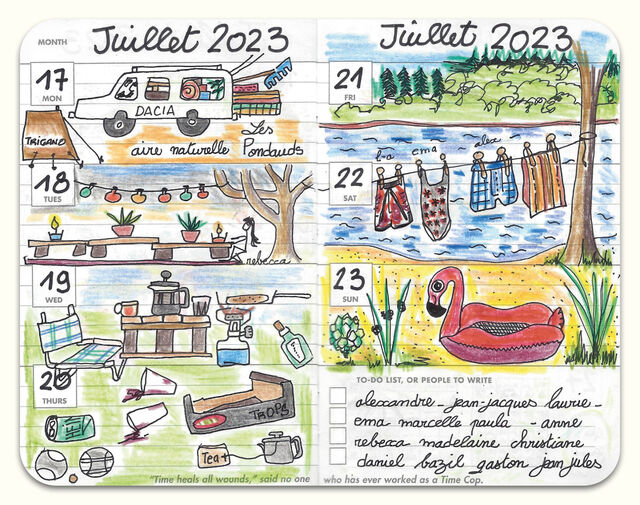 MONTH Juillet 2023
17
MON
DACIA
TRIGANO
aire naturelle Les Pondauds
18
TUES
rebecca
19
WED
20
THURS
TROPS
Tea+
"Time heals all wounds," said no one
Juillet 2023
21
FRI
ema
alex
22
SAT
23
SUN
TO-DO LIST, OR PEOPLE TO WRITE
alexcandre - jean-jacques laurie -
ema marcelle paula - anne
rebecca madelaine christiane
daniel bazil gaston jean jules
who has ever worked as a Time Cop.